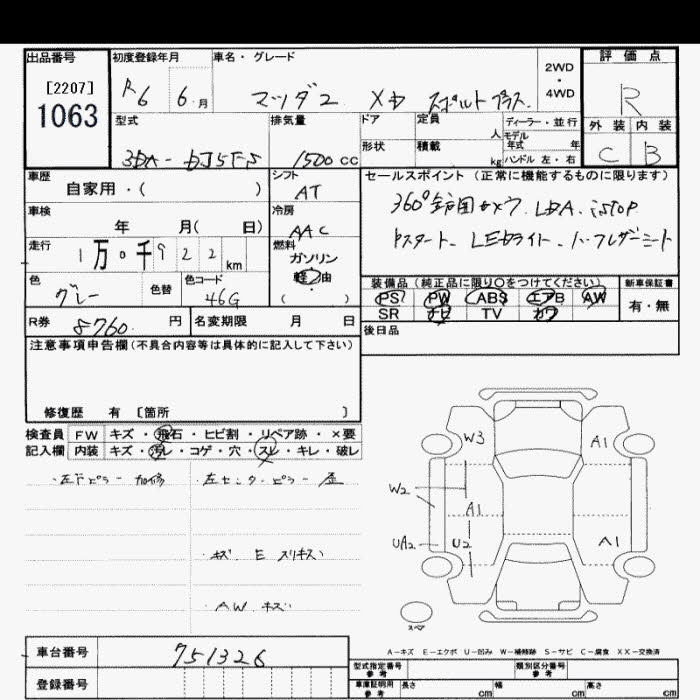 出品番号
[2207]
1063
初度登録年月
R6 6月
車名・グレード
マツダ2 XD スポルト プラス
2WD
・
4WD
評価点
R
外装 内装
C B
型式
3DA-DJ5FS
排気量
1500cc
ドア
形状
定員 人
積載 kg
ディーラー・並行
モデル年式 年
ハンドル 左・右
車歴
自家用・( )
シフト
AT
車検
年 月( 日)
冷房
AAC
走行
1万0千922km
燃料
ガソリン
軽油
・
( )
色
グレー
色替
色コード
46G
R券 8760 円
名変期限 月 日
セールスポイント(正常に機能するものに限ります)
360°
LEDライト ハーフレザーシート
装備品(純正品に限り○をつけてください)
PS PW ABS エアB AW
SR ナビ TV カワ
新車保証書
有・無
後日品
注意事項申告欄(不具合内容等は具体的に記入して下さい)
修復歴 有 [箇所 ]
検査員
記入欄
FW キズ・飛石・ヒビ割・リペア跡・×要
内装 キズ・汚レ・コゲ・穴・スレ・キレ・破レ
・左Fピラー 加修
・左センターピラー 歪
・キズ E スリキズ
・A.W. キズ
W3
A1
W2
A1
UA2
U2
A1
スペア
A-キズ E-エクボ U-凹み W-補修跡 S-サビ C-腐食 XX-交換済
車台番号
751326
登録番号
型式指定番号
参考
類別区分番号
参考
車庫証明用
参考
長さ cm
幅 cm
高さ cm